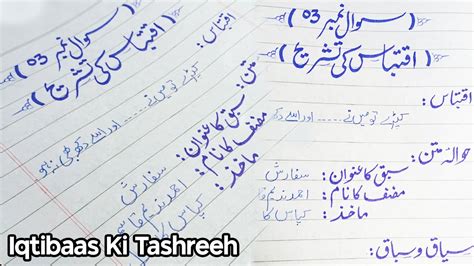 سوال نمبر 03
( اقتباس کی تشریح )
اقتباس:
کپڑے تو میں نے ...... اور اسے دکھ بھی نہ ہو
متن:
سبق کا عنوان: سفارش
مصنف کا نام: احمد ندیم قاسمی
ماخذ: کپاس کا
Iqtibaas Ki Tashreeh
( سوال نمبر 03 )
( اقتباس کی تشریح )
اقتباس:
کپڑے تو میں نے ...... اور اسے دکھ
حوالہ متن:
سبق کا عنوان: سفارش
مصنف کا نام: احمد ندیم قا
ماخذ: کپاس کا
سیاق و سباق: